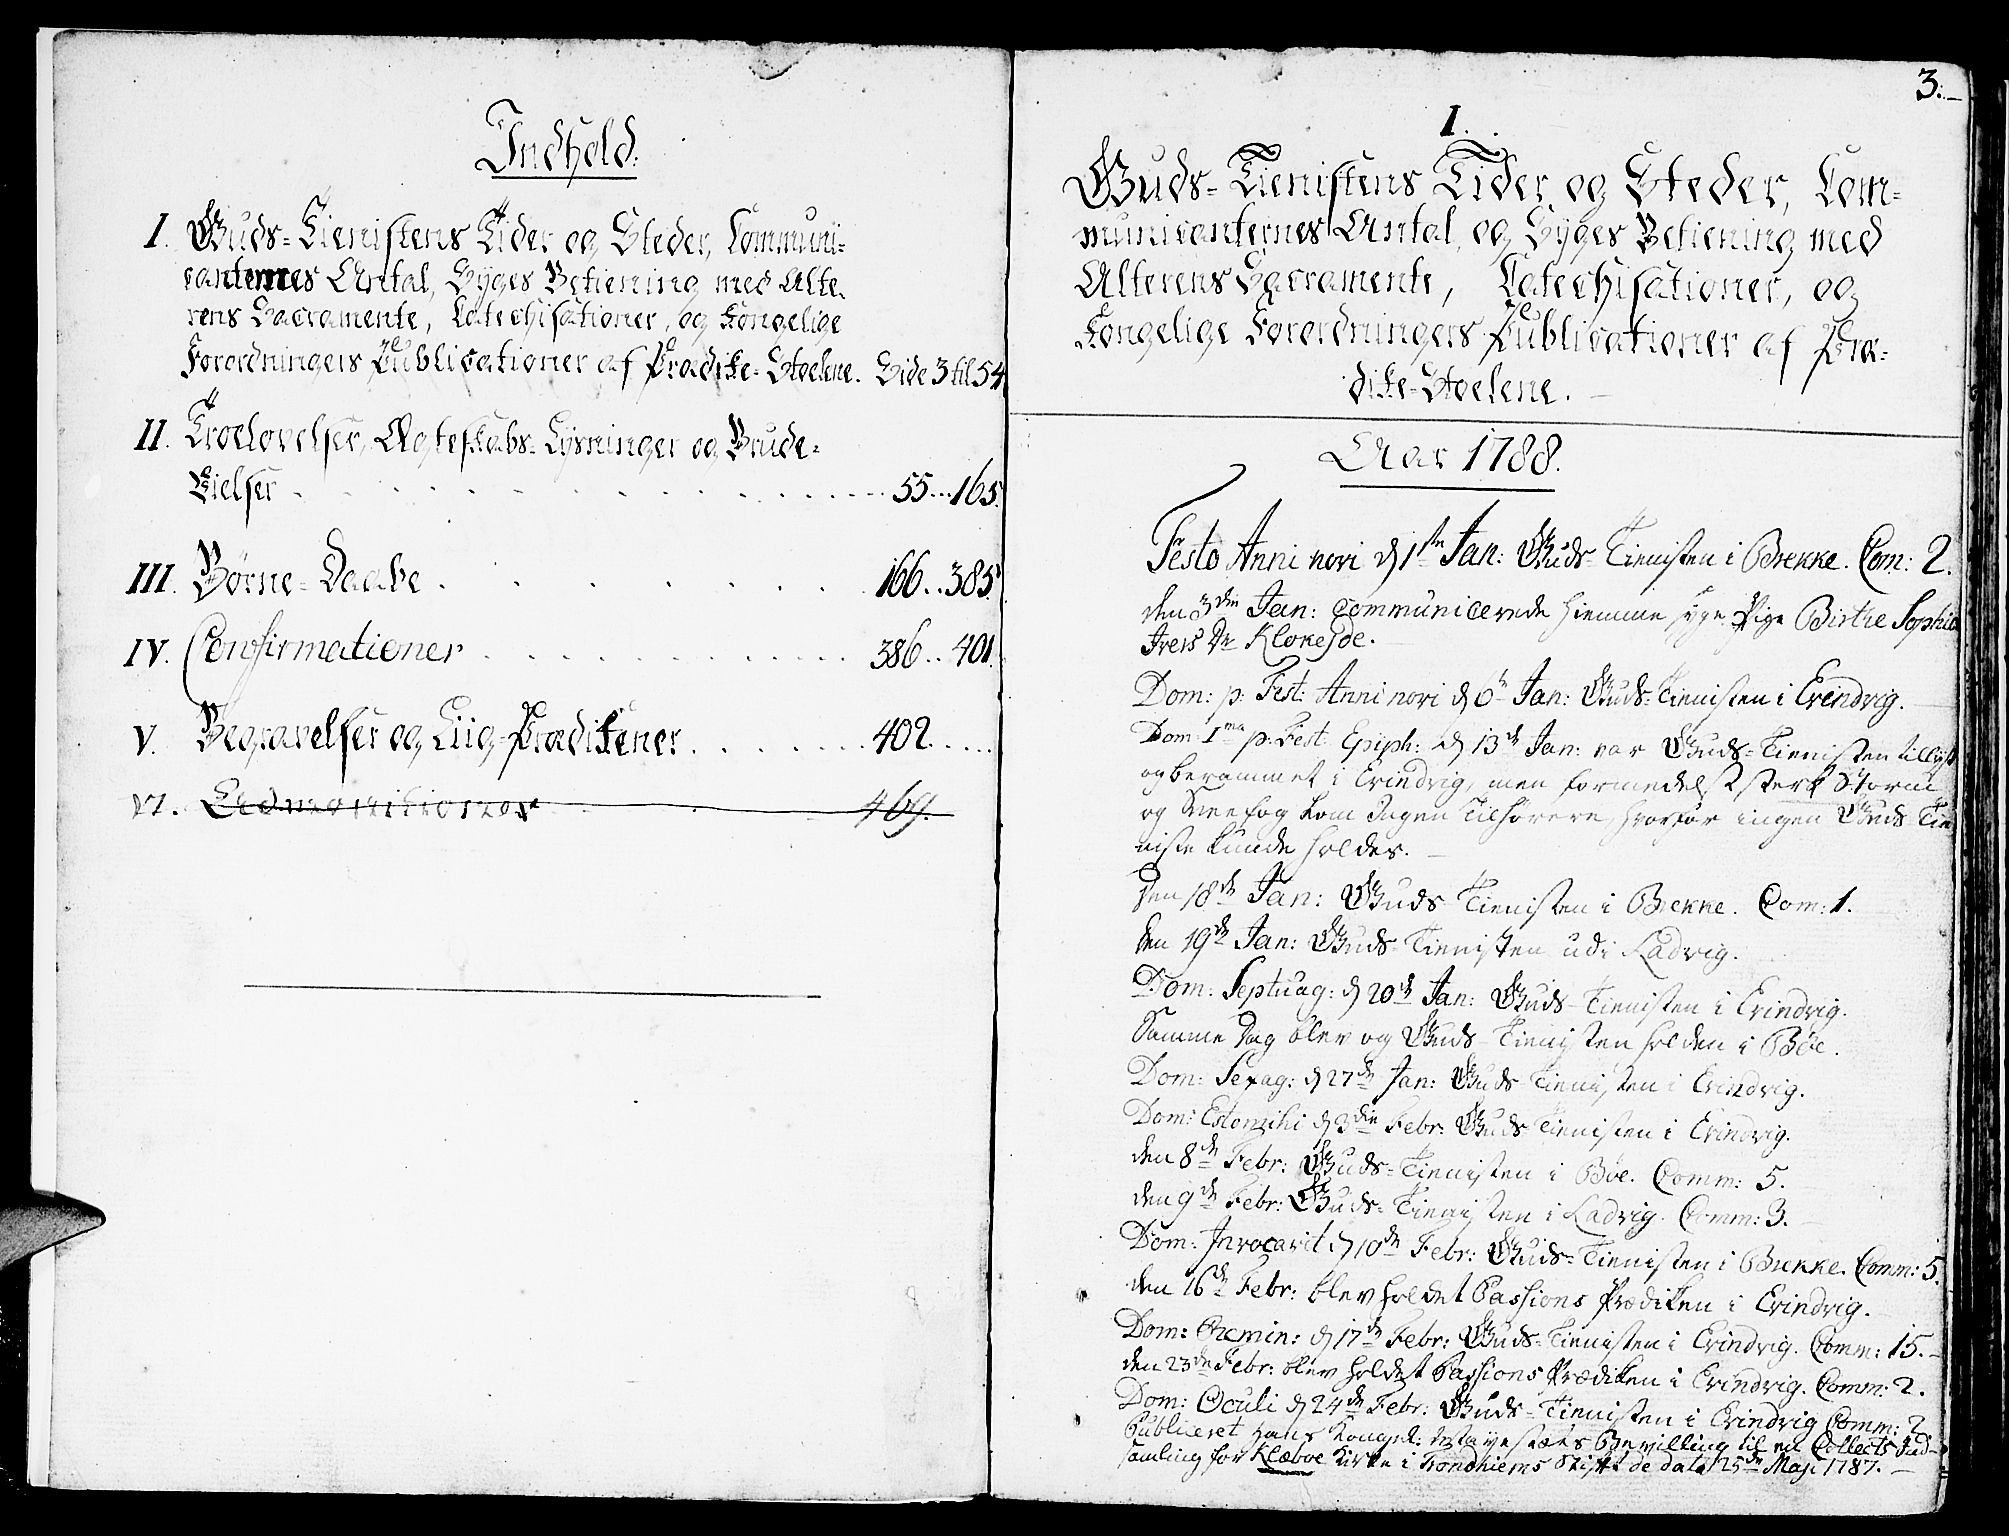 Indhold:
I. Guds-Tienistens Tider og Steder, Communi-
canternes Antal, Syges Betiening med Alte-
rens Sacramente, Catechisationer, og Kongelige
Forordningers Publicationer af Prædike-Stoelene. Side 3 til 54
II. Troelovelser, Ægteskabs-Lysninger og Brude-
Vielser . . . . . . . . . . . . . . . 55...165.
III. Børne-Daabe . . . . . . . 166...385.
IV. Confirmationer . . . . . . . . . . . . 386...401.
V. Begravelser og Liig-Prædikener . . . . . . . 402.....
VI. Admonitioner 469.
3.
I.
Guds-Tienistens Tider og Steder, Com-
municanternes Antal, og Syges Betiening med
Alterens Sacramente, Catechisationer, og
Kongelige Forordningers Publicationer af Præ-
dike-Stoelene.
Aar 1788.
Festo Anni novi d 1ste Jan: Guds-Tienisten i Brekke. Com: 2.
den 3die Jan: communicerede hiemme syge Pige Birthe Sophie
Ivers Dr Klokejde.
Dom: p: Fest: Anni novi d 6te Jan: Guds-Tienisten i Evindvig.
Dom: Ima p: Fest: Epiph: d 13de Jan: var Guds-Tienisten tillyst
og berammet i Evindvig, men formedelst sterk Storm
og Sneefog kom Ingen Tilhørere, hvorfor ingen Guds-Tie-
niste kunde holdes.
Den 18de Jan: Guds-Tienisten i Brekke. Com: 1.
den 19de Jan: Guds-Tienisten udi Ladvig.
Dom: Septuag: d 20de Jan: Guds-Tienisten i Evindvig.
Samme Dag blev og Guds-Tienisten holden i Bøe.
Dom: Sexag: d 27de Jan: Guds-Tienisten i Evindvig.
Dom: Estomihi d 3die Febr: Guds-Tienisten i Evindvig.
den 8de Febr: Guds-Tienisten i Bøe. Comm: 5.
den 9de Febr: Guds-Tienisten i Ladvig. Comm: 3.
Dom: Invocavit d 10de Febr: Guds-Tienisten i Brekke. Comm: 5.
den 16de Febr: blev holdet Passions Prædiken i Evindvig.
Dom: Remin: d 17de Febr: Guds-Tienisten i Evindvig. Comm: 15.
den 23de Febr: blev holdet Passions Prædiken i Evindvig. Comm: 2.
Dom: Oculi d 24de Febr: Guds-Tienisten i Evindvig Comm: 2.
Publiceret hans Kongel: Mayestæts Bevilling til en Collects Ind-
samling for Klæboe Kirke i Trondhiems Stift de dato 25de Maji 1787.